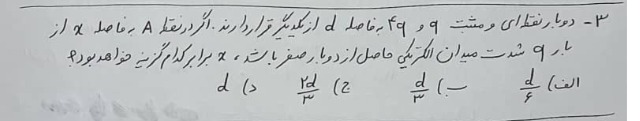 ۳- دو بار نقطه‌ای و مثبت q و ۴q به فاصله d از یکدیگر قرار دارند. اگر در نقطه A به فاصله x از
بار q شدت میدان الکتریکی حاصل از دو بار صفر باشد، x برابر کدام گزینه خواهد بود؟
الف) d/۶ ب) d/۳ ج) ۲d/۳ د) d